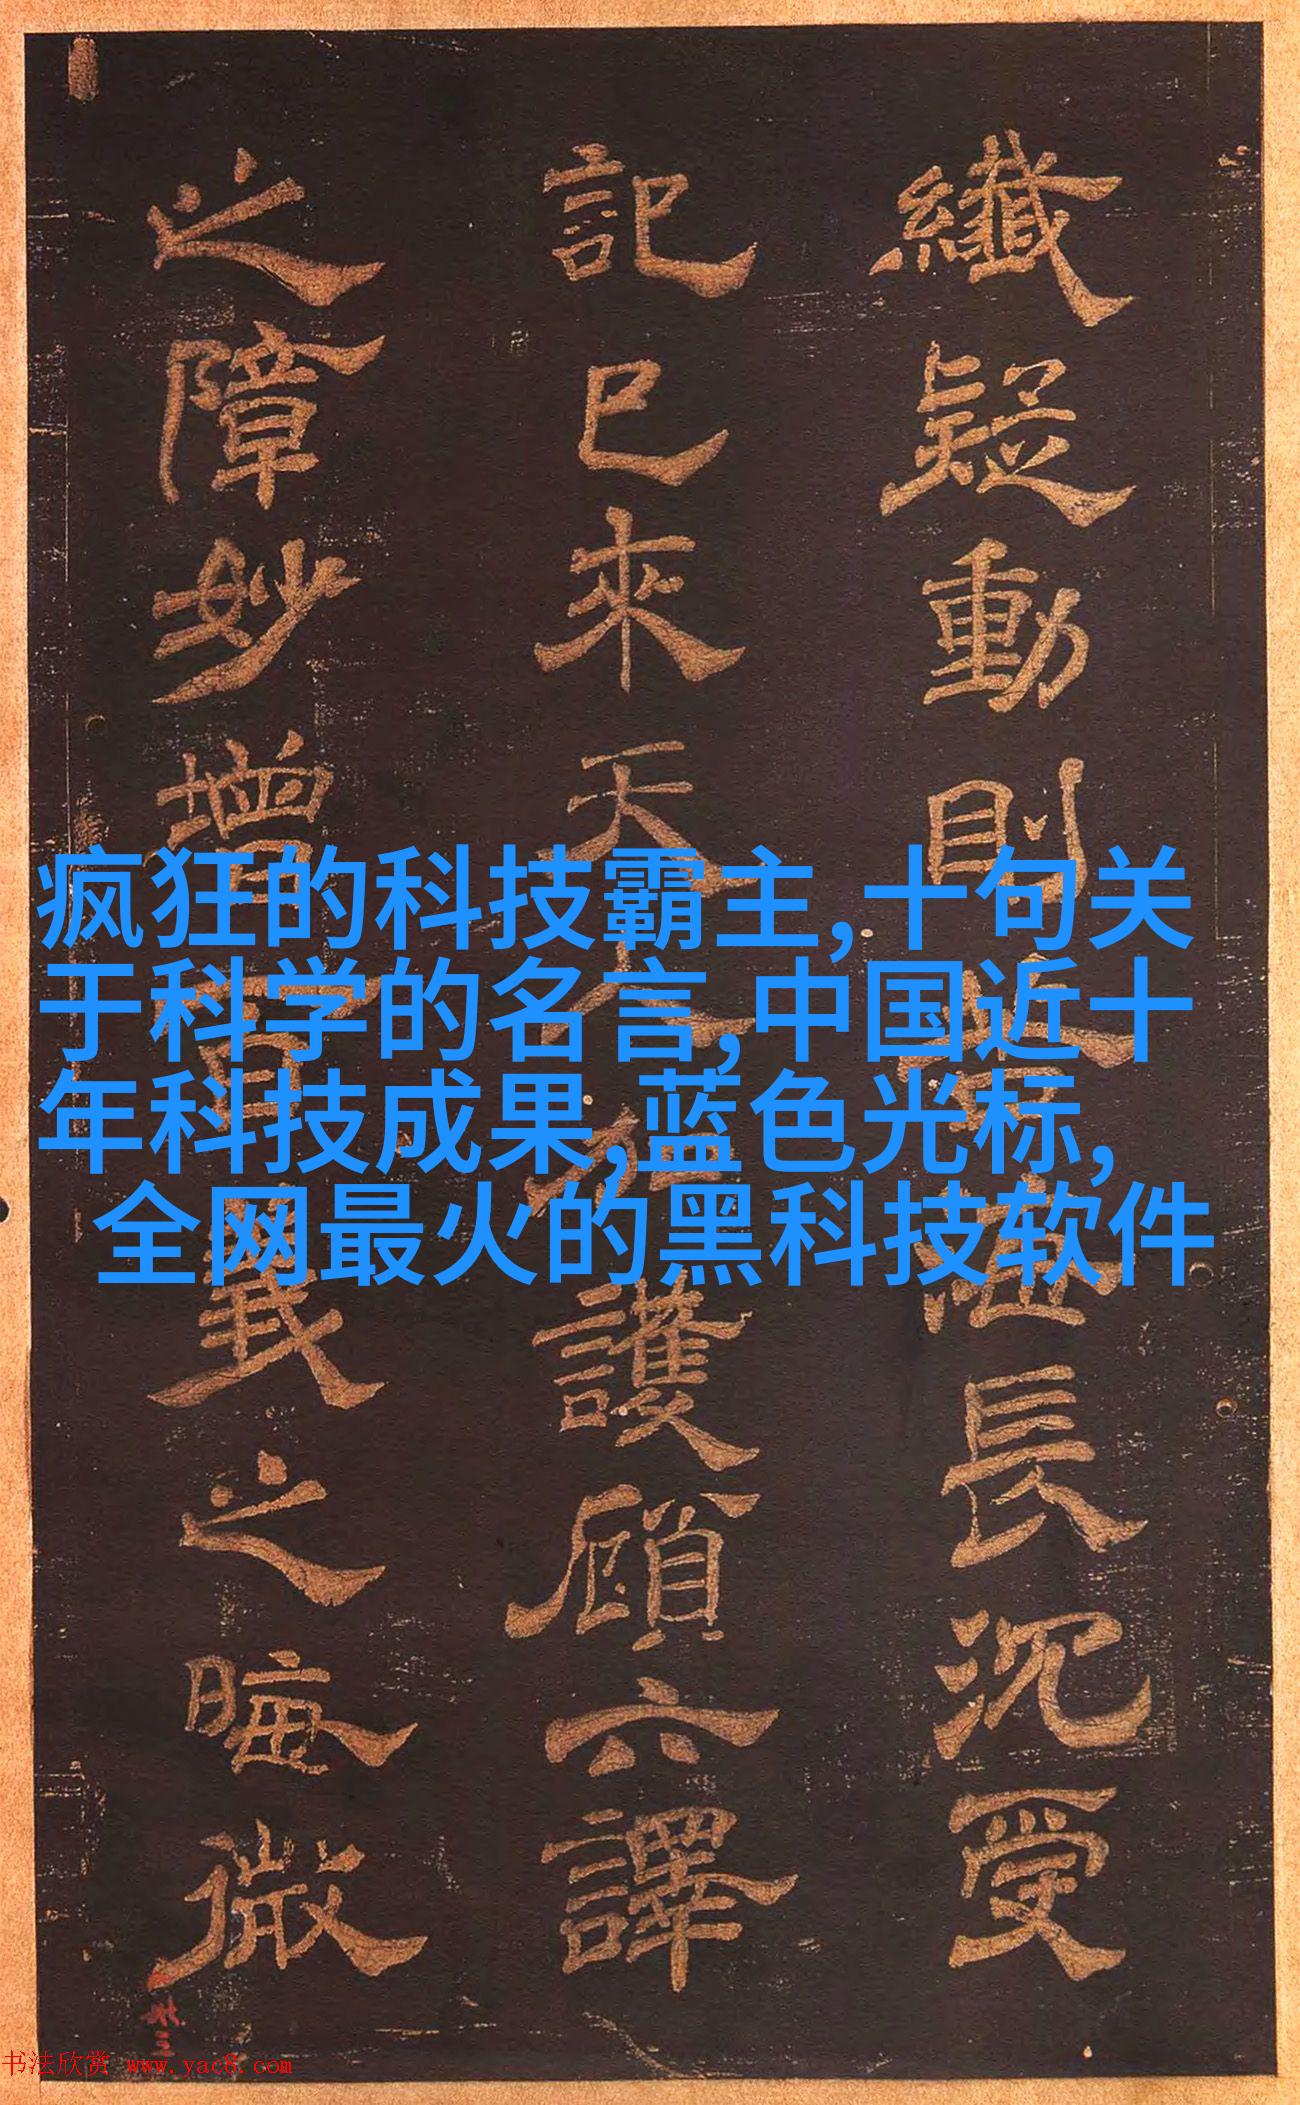 纖疑動則長沉受
記已來天護顧六譯
之障妙增之晦微
疯狂的科技霸主,十句关
于科学的名言,中国近十
年科技成果,蓝色光标,
全网最火的黑科技软件
书法欣赏 www.yac8.com